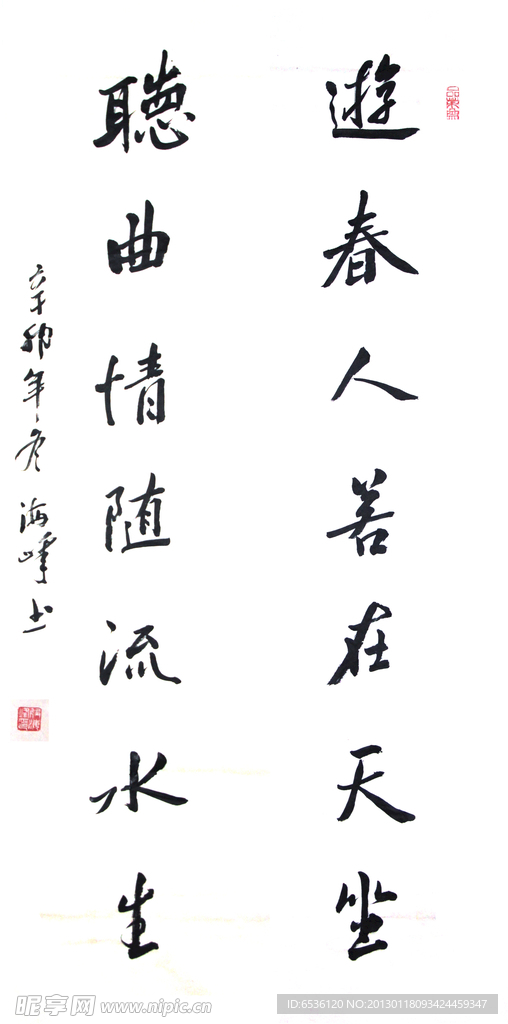 遊春人若在天坐
聽曲情随流水生
辛卯年冬 海峰书
昵享网 www.nipic.cn
ID:6536120 NO:20130118093424459347